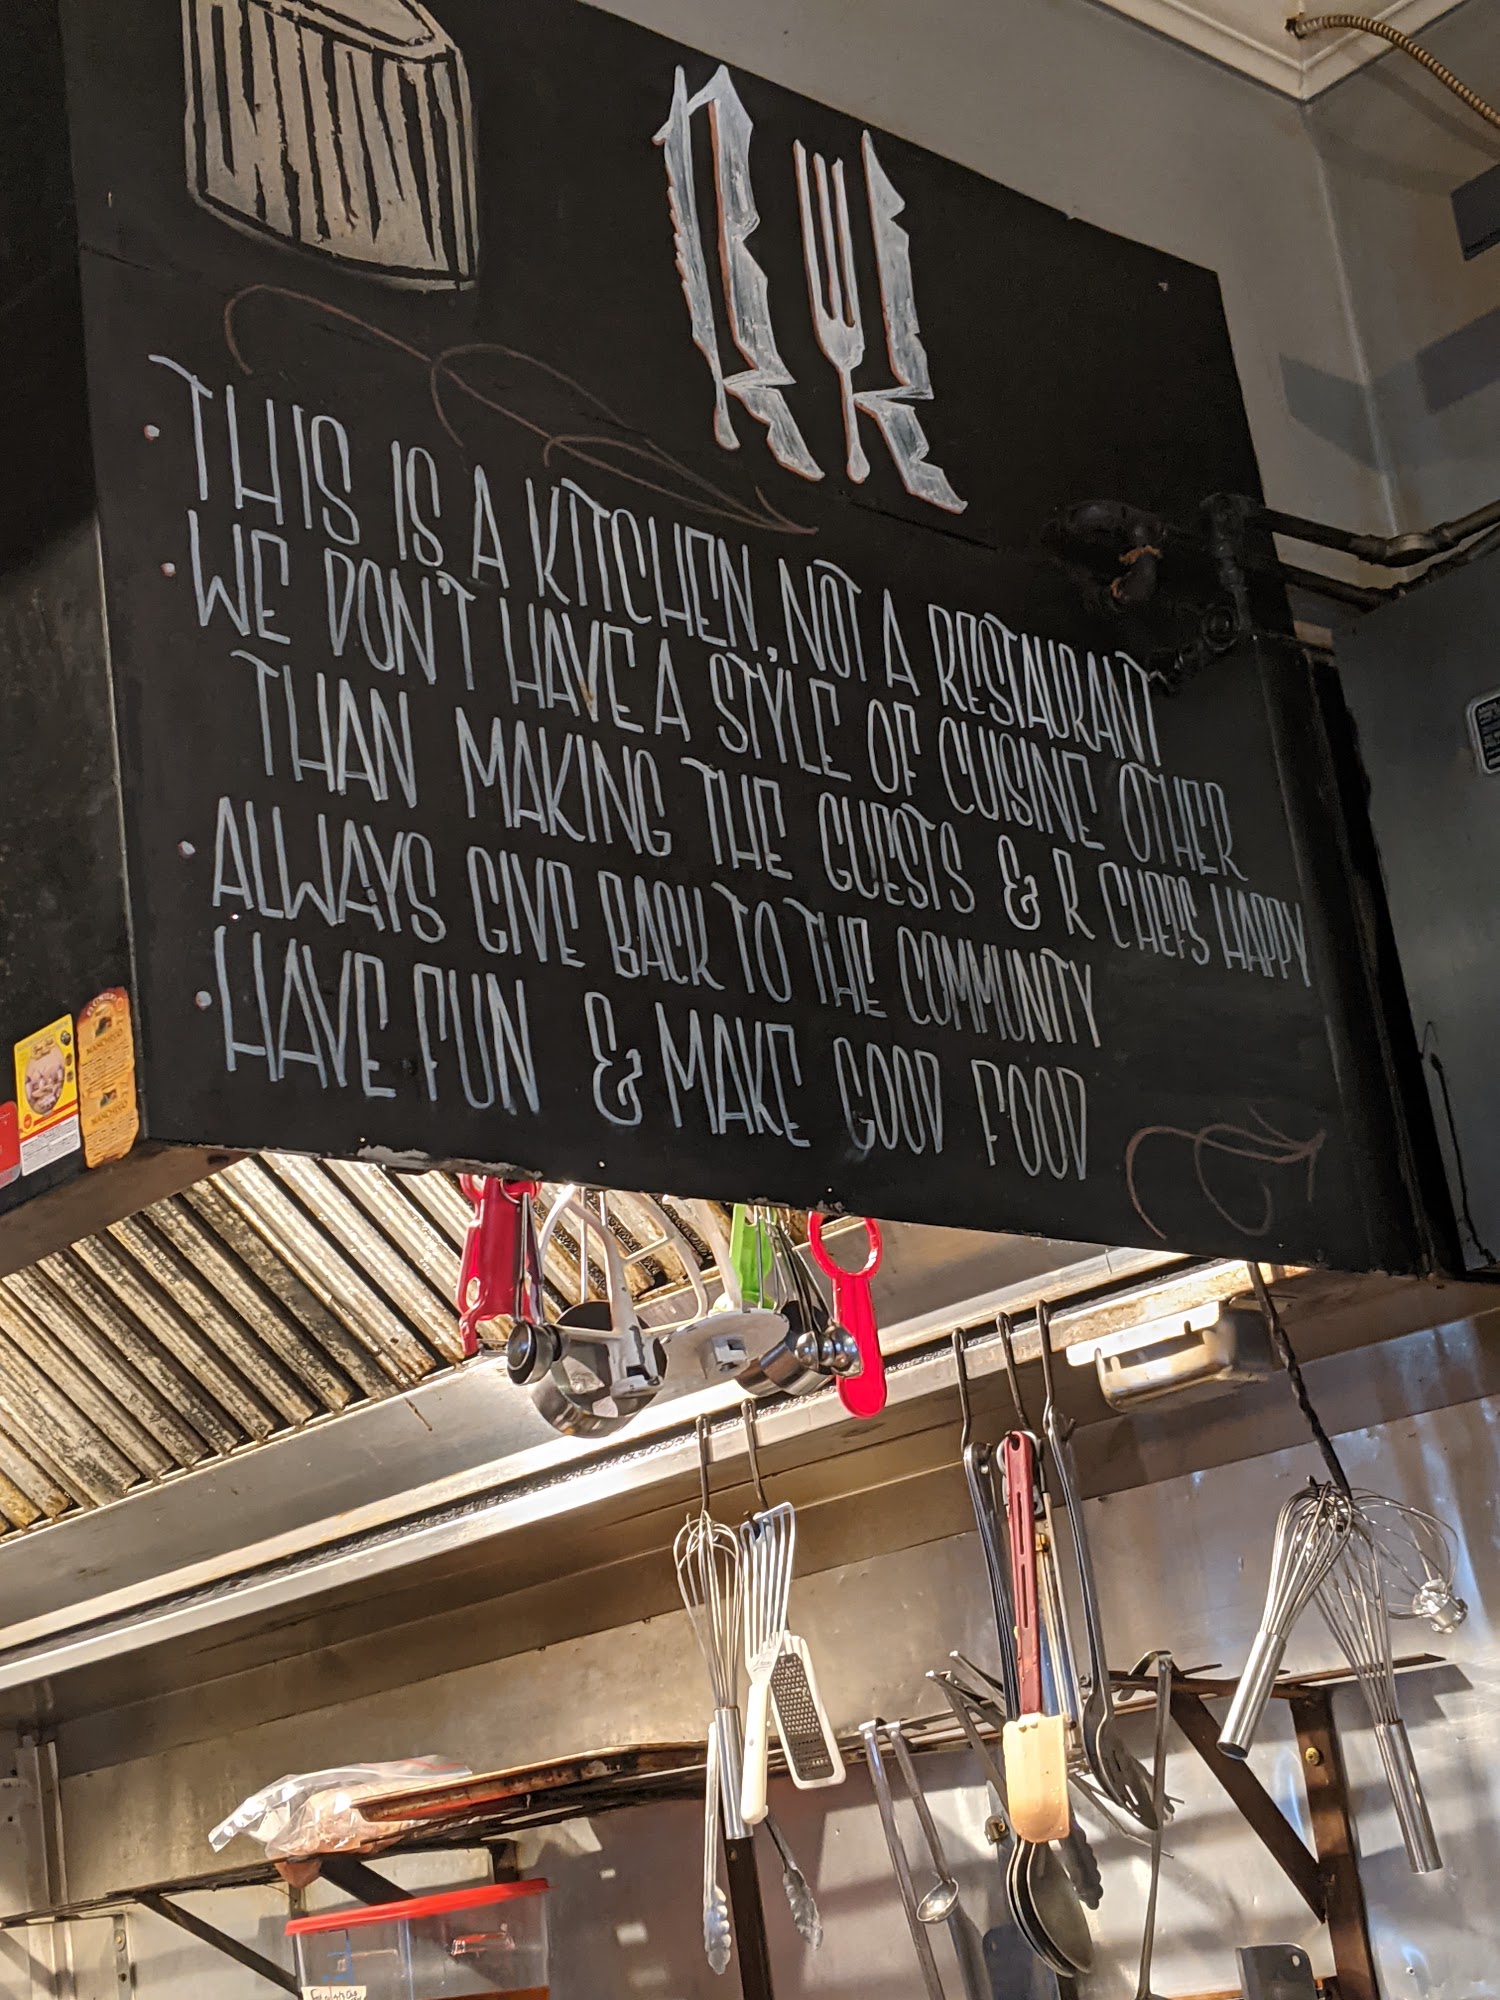 · THIS IS A KITCHEN, NOT A RESTAURANT
· WE DON'T HAVE A STYLE OF CUISINE OTHER
THAN MAKING THE GUESTS & R CHEFS HAPPY
· ALWAYS GIVE BACK TO THE COMMUNITY
· HAVE FUN & MAKE GOOD FOOD
MANCHEGO
MANCHEGO